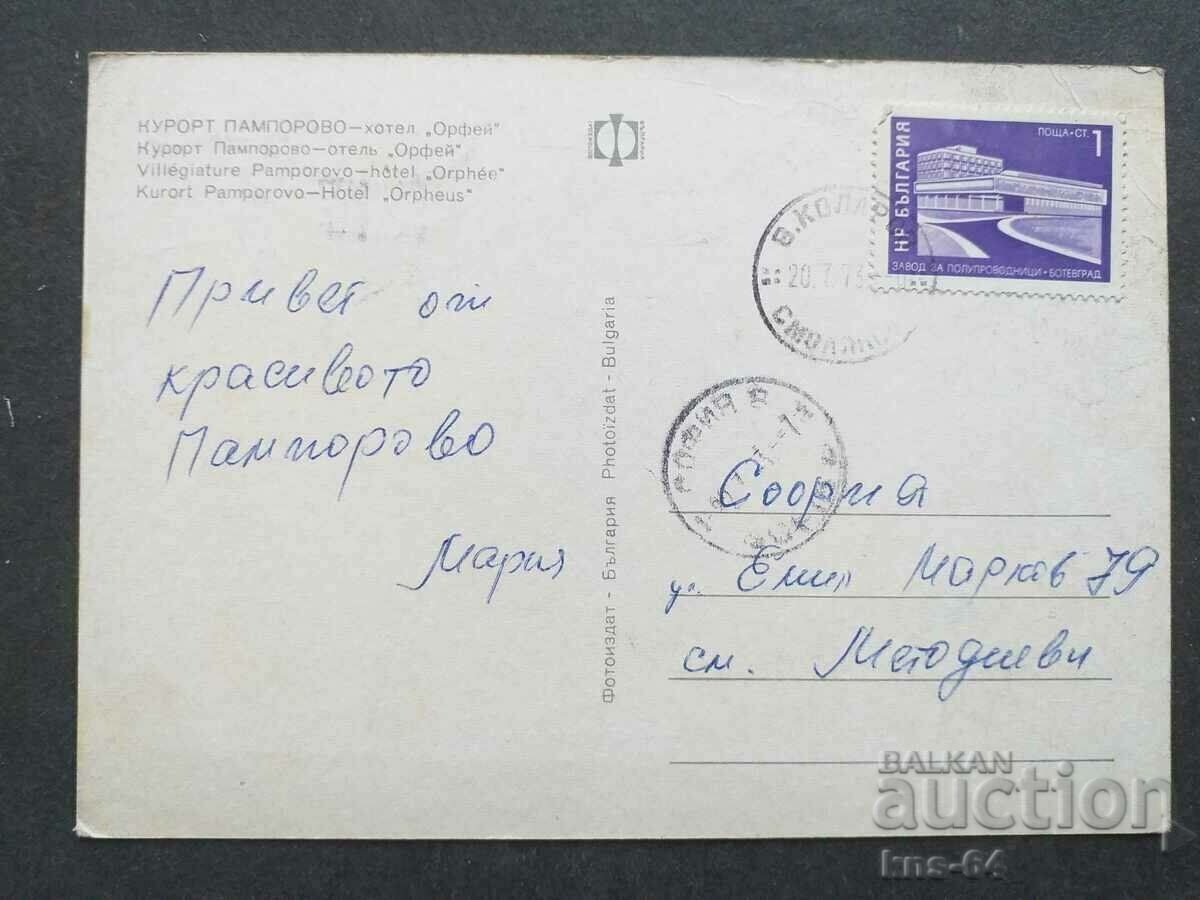 КУРОРТ ПАМПОРОВО—хотел „Орфей“
Курорт Пампорово—отель „Орфей“
Villégiature Pamporovo—hôtel „Orphée“
Kurort Pamporovo—Hotel „Orpheus“
Привет от
красивото
Пампорово
Мария
Фотоиздат - България Photoizdat - Bulgaria
ПОЩА•СТ. 1
НР БЪЛГАРИЯ
ЗАВОД ЗА ПОЛУПРОВОДНИЦИ•БОТЕВГРАД
В.КОЛАРОВ
20.7.73
СМОЛЯНСКО
СОФИЯ
София
ул. Емил Марков 79
см. Методиеви
BALKAN
auction
kns-64